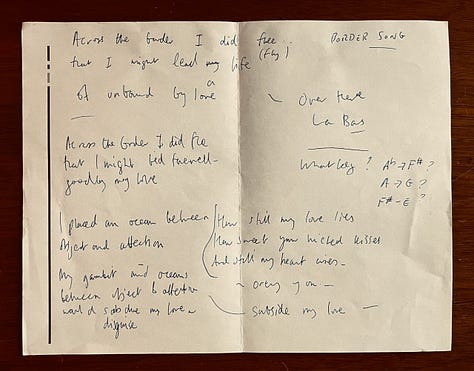 Across the border I did flee
(fly)
that I might lead my life
of unbound by love
a
Across the border I did flee
that I might bid farewell
goodbye my love
I placed an ocean between
object and affection
My gambit and oceans
between object & affection
would subdue my love
disguise
BORDER SONG
Over there
La Bas
What key? Ab → F# ?
A → G ?
F# – E ?
How still my love lies
How sweet your wicked kisses
And still my heart cries –
subside my love –